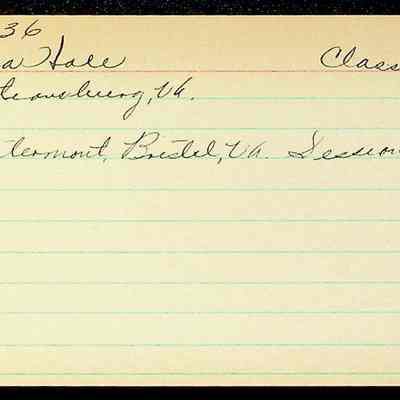 36
a Hale Class
trausburg, Va.
termont, Bristol, Va. Session